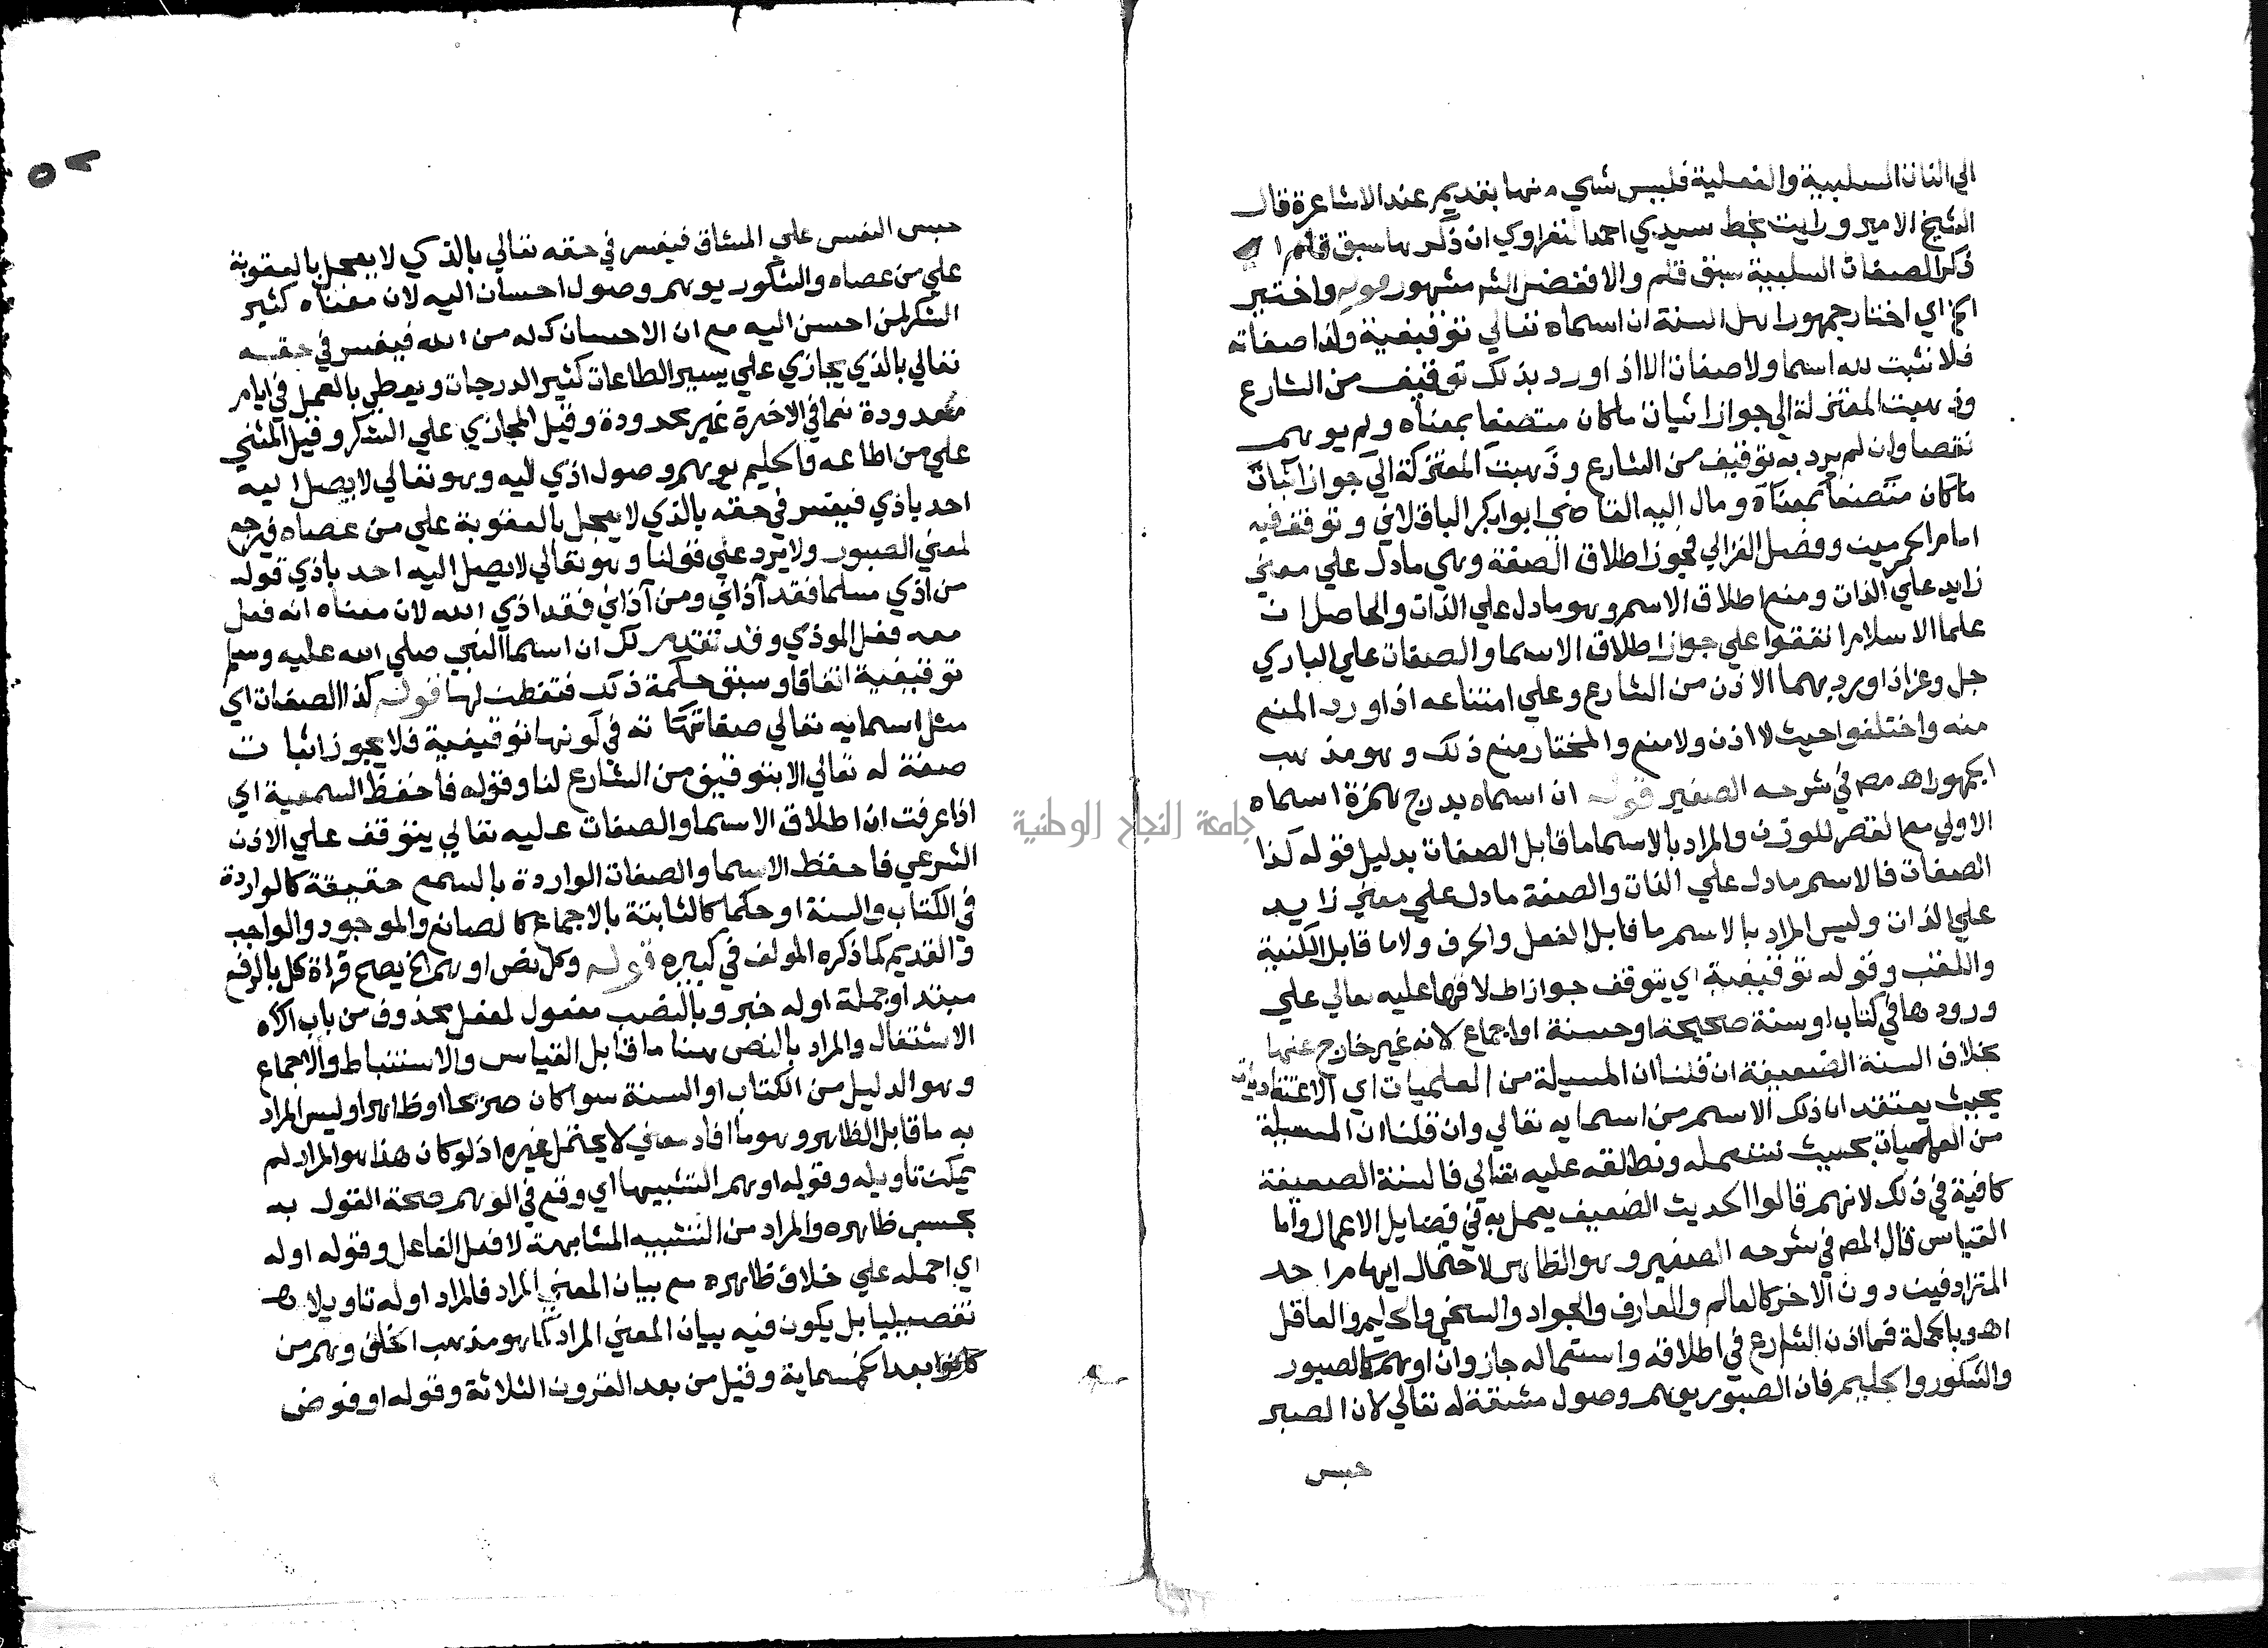 الي الذات السلبية والفعلية فليس شي منها بقديم عند الاشاعرة قال
الشيخ الامير ورايت بخط سيدي احمد النفراوي ان ذكرها سبق قلم اي
ذكر الصفات السلبية سبق قلم والا ففضل الشر مشهور قوله واختير
الخ اي اختار جمهور اهل السنة ان اسماه تعالي توقيفية وكذا صفاته
فلا نثبت لله اسما ولا صفات الا اذا ورد بذلك توقيف من الشارع
وذهبت المعتزلة الي جواز اثبات ماكان متصفا بمعناه ولم يوهم
نقصا وان لم يرد به توقيف من الشارع وذهبت المعتزلة الي جواز اثبات
ماكان متصفا بمعناه ومال اليه القاضي ابوا بكر الباقلاني وتوقف فيه
امام الحرمين وفضل الغزالي فجوز اطلاق الصفة وهي مادل علي معني
زايد علي الذات ومنع اطلاق الاسم وهو مادل علي الذات والحاصل ان
علما الاسلام اتفقوا علي جواز اطلاق الاسما والصفات علي الباري
جل وعز اذا ورد بهما الاذن من الشارع وعلي امتناعه اذا ورد المنع
منه واختلفوا حيث لا اذن ولا منع والمختار منع ذلك وهو مذهب
الجمهور اه مص في شرحه الصغير قوله ان اسماه بدرج همزة اسماه
الاولي مع القصر للوزن والمراد بالاسما ما قابل الصفات بدليل قوله كذا
الصفات فالاسم مادل علي الذات والصفة مادل علي معني زايد
علي الذات وليس المراد بالاسم ما قابل الفعل والحرف ولا ما قابل الكنية
واللقب وقوله توقيفية اي يتوقف جواز اطلاقها عليه تعالي علي
ورودها في كتاب او سنة صحيحة او حسنة او اجماع لانه غير خارج عنها
بخلاف السنة الضعيفة ان قلنا ان المسيلة من العلميات اي الاعتقاديات
بحيث يعتقد ان ذلك الاسم من اسمايه تعالي وان قلنا ان المسيلة
من العمليات بحيث نستعمله ونطلقه عليه تعالي فالسنة الضعيفة
كافية في ذلك لانهم قالوا الحديث الضعيف يعمل به في فضايل الاعمال واما
القياس قال المص في شرحه الصغير وهو الظاهر لاحتمال ايهام احد
المترادفين دون الاخر كالعالم والعارف والجواد والسخي والحليم والعاقل
اه وبالجملة فما اذن الشارع في اطلاقه واستعماله جاز وان اوهم كالصبور
والشكور والحليم فان الصبور يوهم وصول مشقة له تعالي لان الصبر
حبس
حبس النفس علي المشاق فيفسر في حقه تعالي بالذي لا يعجل بالعقوبة
علي من عصاه والشكور يوهم وصول احسان اليه لان معناه كثير
الشكر لمن احسن اليه مع ان الاحسان كله من الله فيفسر في حقه
تعالي بالذي يجازي علي يسير الطاعات كثير الدرجات ويعطي بالعمل في ايام
معدودة نعما في الاخرة غير محدودة وقيل المجازي علي الشكر وقيل المثني
علي من اطاعه والحليم يوهم وصول اذي اليه وهو تعالي لا يصل اليه
احد باذي فيفسر في حقه بالذي لا يعجل بالعقوبة علي من عصاه فيرجع
لمعني الصبور ولا يرد علي قولنا وهو تعالي لا يصل اليه احد باذي قوله
من اذي مسلما فقد آذاني ومن آذاني فقد اذي الله لان معناه انه فعل
معه فعل الموذي وقد تقدم لك ان اسما النبي صلي الله عليه وسلم
توقيفية اتفاقا وسبق حكمة ذلك فتفطن لها قوله كذا الصفات اي
مثل اسمايه تعالي صفاته في كونها توقيفية فلا يجوز اثبات
صفة له تعالي الا بتوقيف من الشارع لنا وقوله فاحفظ السمعية اي
اذا عرفت ان اطلاق الاسما والصفات عليه تعالي يتوقف علي الاذن
الشرعي فاحفظ الاسما والصفات الواردة بالسمع حقيقة كالواردة
في الكتاب والسنة او حكما كالثابتة بالاجماع كالصانع والموجود والواجب
والقديم كما ذكره المولف في كبيره قوله وكل نص اوهم الخ يصح قراة كل بالرفع
مبتدا وجملة اوله خبر وبالنصب مفعول لفعل محذوف من باب
الاشتغال والمراد بالنص هنا ما قابل القياس والاستنباط والاجماع
وهو الدليل من الكتاب او السنة سوا كان صريحا او ظاهرا وليس المراد
به ما قابل الظاهر وهو ما افاد معني لا يحتمل غيره اذ لو كان هذا هو المراد لم
يمكن تاويله وقوله اوهم التشبيها اي وقع في الوهم صحة القول به
بحسب ظاهره والمراد من التشبيه المشابهة لا فعل الفاعل وقوله اوله
اي احمله علي خلاف ظاهره مع بيان المعني المراد فالمراد اوله تاويلا
تفصيليا بل يكون فيه بيان المعني المراد كما هو مذهب الخلق وهم من
كانوا بعد الخمسماية وقيل من بعد القرون الثلاثة وقوله او فوض
جامعة النجاح الوطنية